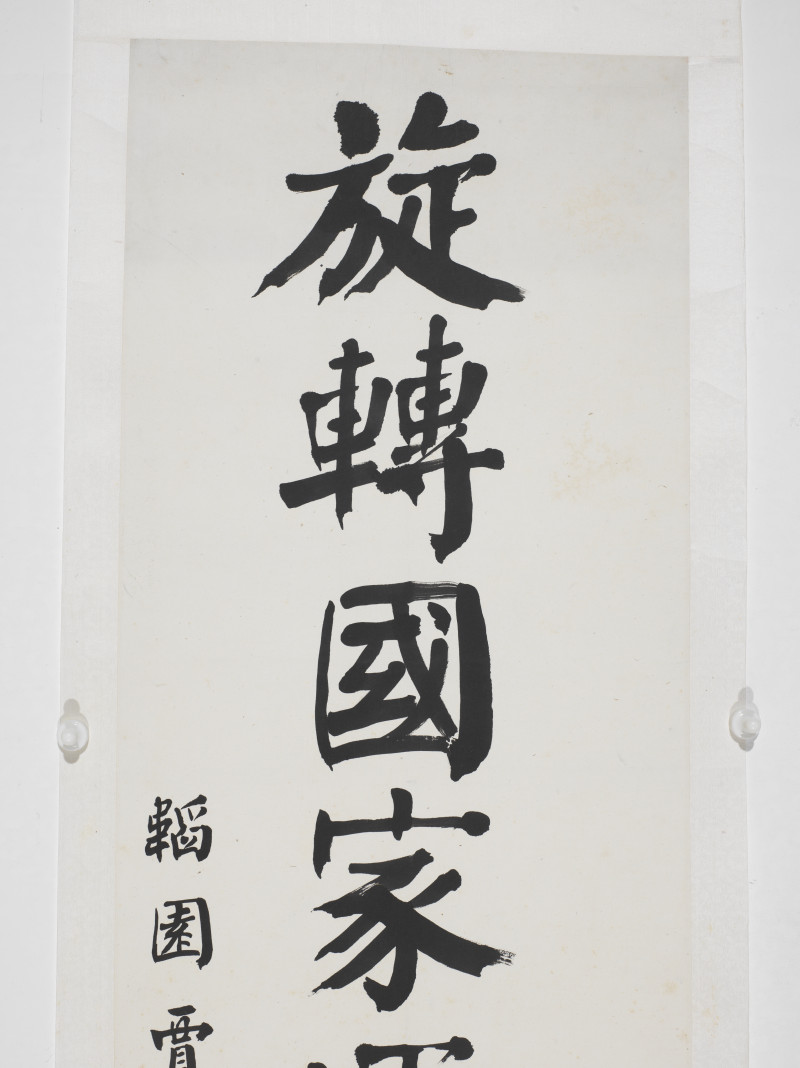 旋轉國家
韜園賈